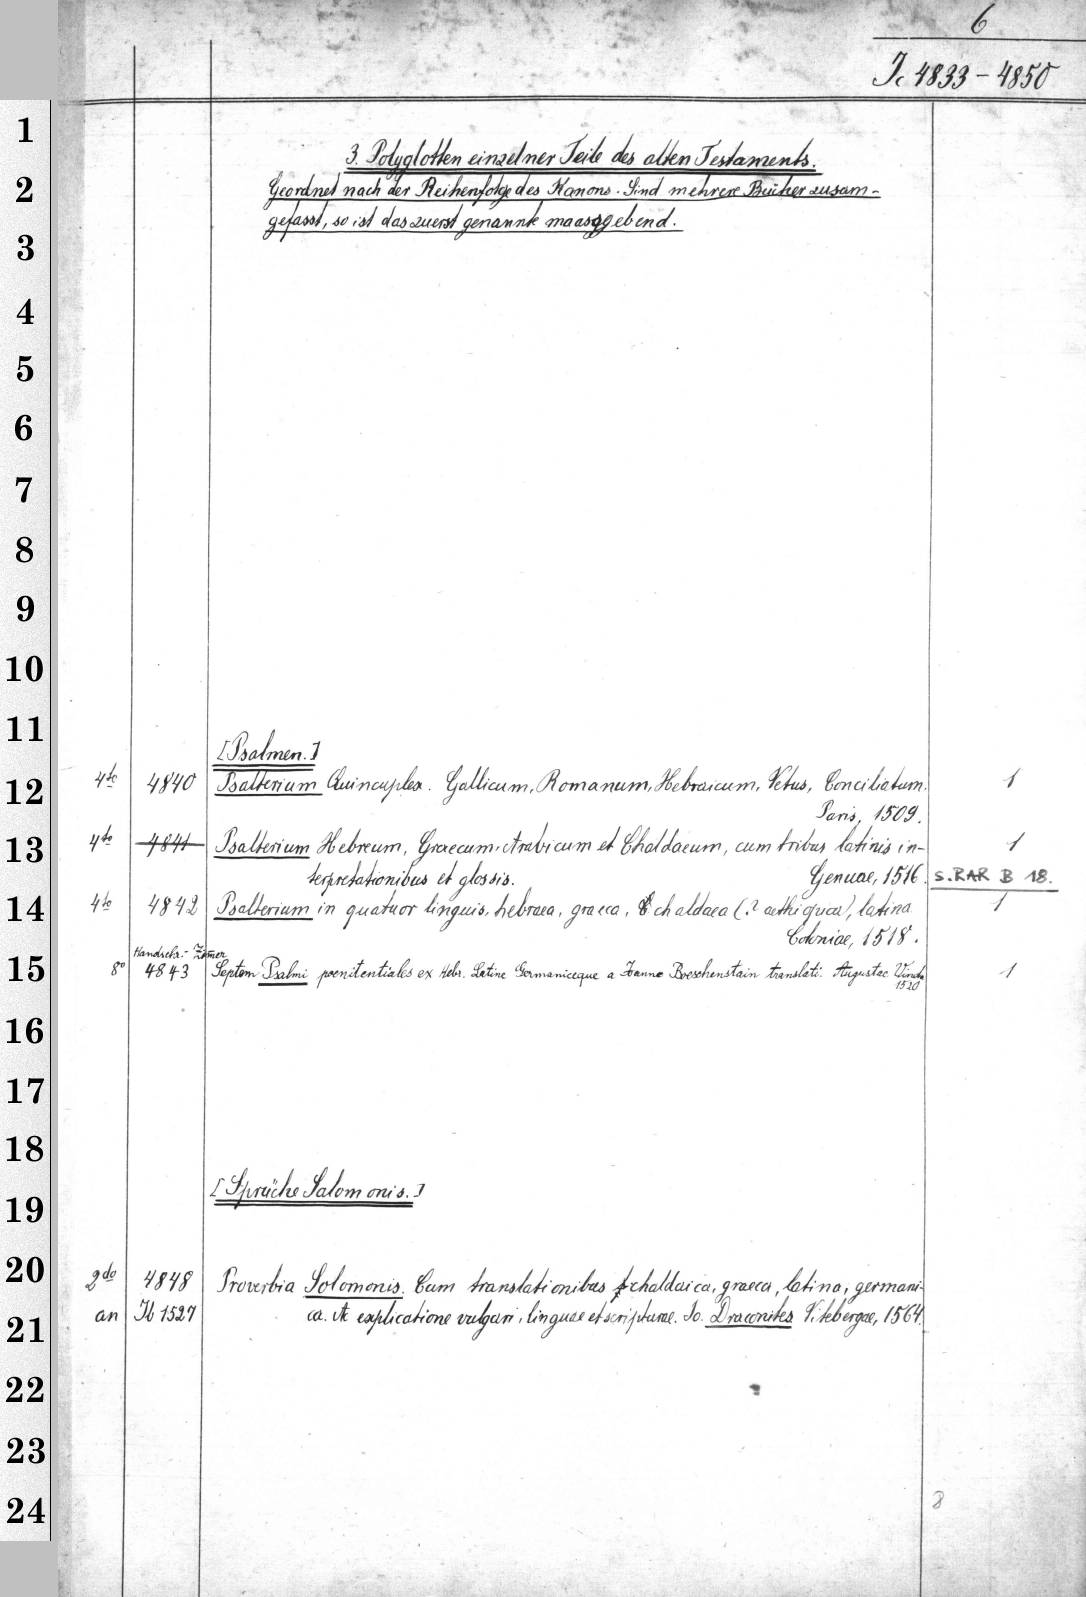 6
Ic 4833 - 4850
1
3. Polyglotten einzelner Teile des alten Testaments.
2 Geordnet nach der Reihenfolge des Kanons. Sind mehrere Bücher zusam-
3 gefasst, so ist das zuerst genannte maassgebend.
4
5
6
7
8
9
10
11
[Psalmen.]
12 4to 4840 Psalterium Quincuplex. Gallicum, Romanum, Hebraicum, Vetus, Conciliatum. 1
Paris, 1509.
13 4to 4841 Psalterium Hebreum, Graecum, Arabicum et Chaldaeum, cum tribus latinis in- 1
terpretationibus et glossis. Genuae, 1516. s. RAR B 18.
14 4to 4842 Psalterium in quatuor linguis, hebraea, graeca, chaldaea (? aethiopica), latina. 1
Coloniae, 1518.
Handschr.-Zimmer
15 8o 4843 Septem Psalmi poenitentiales ex Hebr. Latine Germaniceque a Ioanne Boeschenstain translati. Augustae Vindel. 1
1520
16
17
18
[Sprüche Salomonis.]
19
20 2do 4848 Proverbia Solomonis. Cum translationibus chaldaica, graeca, latina, germani-
21 an Ib 1527 ca. et explicatione vulgari, linguae et scripturae. Jo. Draconites Vitebergae, 1564.
22
23
24
8